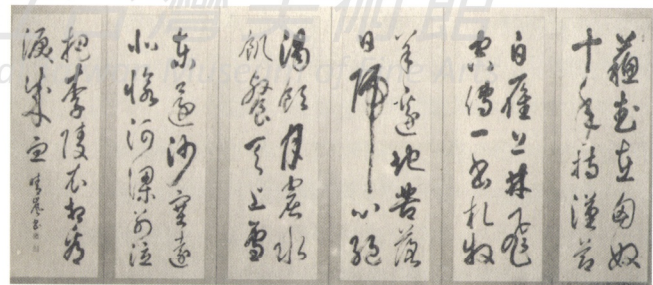 蘇武在匈奴
十年持漢節
白雁上林飛
空傳一書札牧
羊邊地苦落
日歸心絕
渴飲月窟水
飢餐天上雪
東還沙塞遠
北愴河梁別泣
把李陵衣相看
淚成血
立臺灣美術館